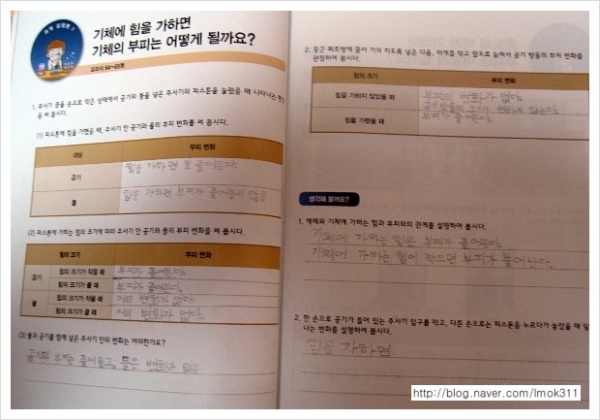 기체에 힘을 가하면
기체의 부피는 어떻게 될까요?
교과서 64~65쪽
1. 주사기 끝을 손으로 막은 상태에서 공기와 물을 넣은 주사기의 피스톤을 눌렀을 때 나타나는
을 써 봅시다.
(1) 피스톤에 힘을 가했을 때, 주사기 안 공기와 물의 부피 변화를 써 봅시다.
대상 부피 변화
공기 힘을 가하면 잘 줄어든다.
물 힘을 가하면 부피가 줄어들지 않음
(2) 피스톤에 가하는 힘의 크기에 따라 주사기 안 공기와 물의 부피 변화를 써 봅시다.
힘의 크기 부피 변화
공기 힘의 크기가 작을 때 부피가 줄어든다.
힘의 크기가 클 때 부피가 줄어든다.
물 힘의 크기가 작을 때 거의 변화가 없다.
힘의 크기가 클 때 거의 변화가 없다.
(3) 물과 공기를 함께 넣은 주사기 안의 변화는 어떠한가요?
공기의 부피는 줄어들고, 물은 변화가 없음
2. 둥근 페트병에 물과 거의 차도록 넣은 다음, 마개를 막고 옆으로 눕혀서 공기 방울의 부피 변화를
관찰하여 봅시다.
힘의 크기 부피 변화
힘을 가하지 않았을 때 부피의 변화가 없다.
힘을 가했을 때 부피가 줄어든다.
생각해 볼까요?
1. 액체와 기체에 가하는 힘과 부피와의 관계를 설명하여 봅시다.
기체에 가하는 힘은 부피가 줄어든다.
기체에 가하는 힘이 작으면 부피가 늘어난다.
2. 한 손으로 공기가 들어 있는 주사기 입구를 막고, 다른 손으로는 피스톤을 누르다가 놓았을 때 일
나는 변화를 설명하여 봅시다.
힘을 가하면
http://blog.naver.com/lmok311